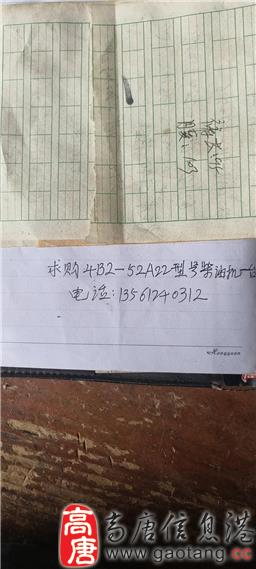 求购4B2-52A22型号柴油机一台
电话:13561240312
高唐
高唐信息港
www.gaotang.cc